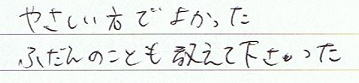 やさしい方でよかった
ふだんのことも教えて下さった